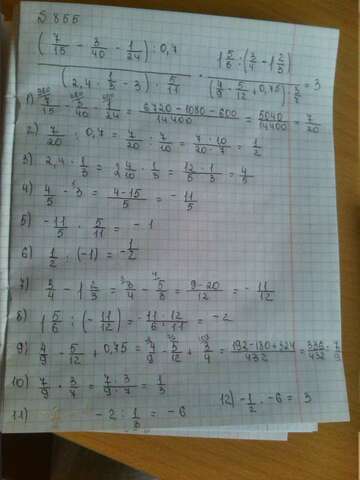 № 855
(7/15 - 3/40 - 1/24) : 0,7 / (2,4 · 1/3 - 3) · 5/11 · 1 5/6 : (3/4 - 1 2/3) / (4/9 - 5/12 + 0,75) · 3/7 = 3
1) 7/15 - 3/40 - 1/24 = 6720-1080-600/14400 = 5040/14400 = 7/20
2) 7/20 : 0,7 = 7/20 : 7/10 = 7·10/20·7 = 1/2
3) 2,4 · 1/3 = 2 4/10 · 1/3 = 12·1/5·3 = 4/5
4) 4/5 - 3 = 4-15/5 = - 11/5
5) -11/5 · 5/11 = -1
6) 1/2 : (-1) = -1/2
7) 3/4 - 1 2/3 = 3/4 - 5/3 = 9-20/12 = - 11/12
8) 1 5/6 : (- 11/12) = -11·12/6·11 = -2
9) 4/9 - 5/12 + 0,75 = 4/9 - 5/12 + 3/4 = 192-180+324/432 = 336/432 = 7/9
10) 7/9 · 3/7 = 7·3/9·7 = 1/3
11) -2 : 1/3 = -6
12) -1/2 · -6 = 3